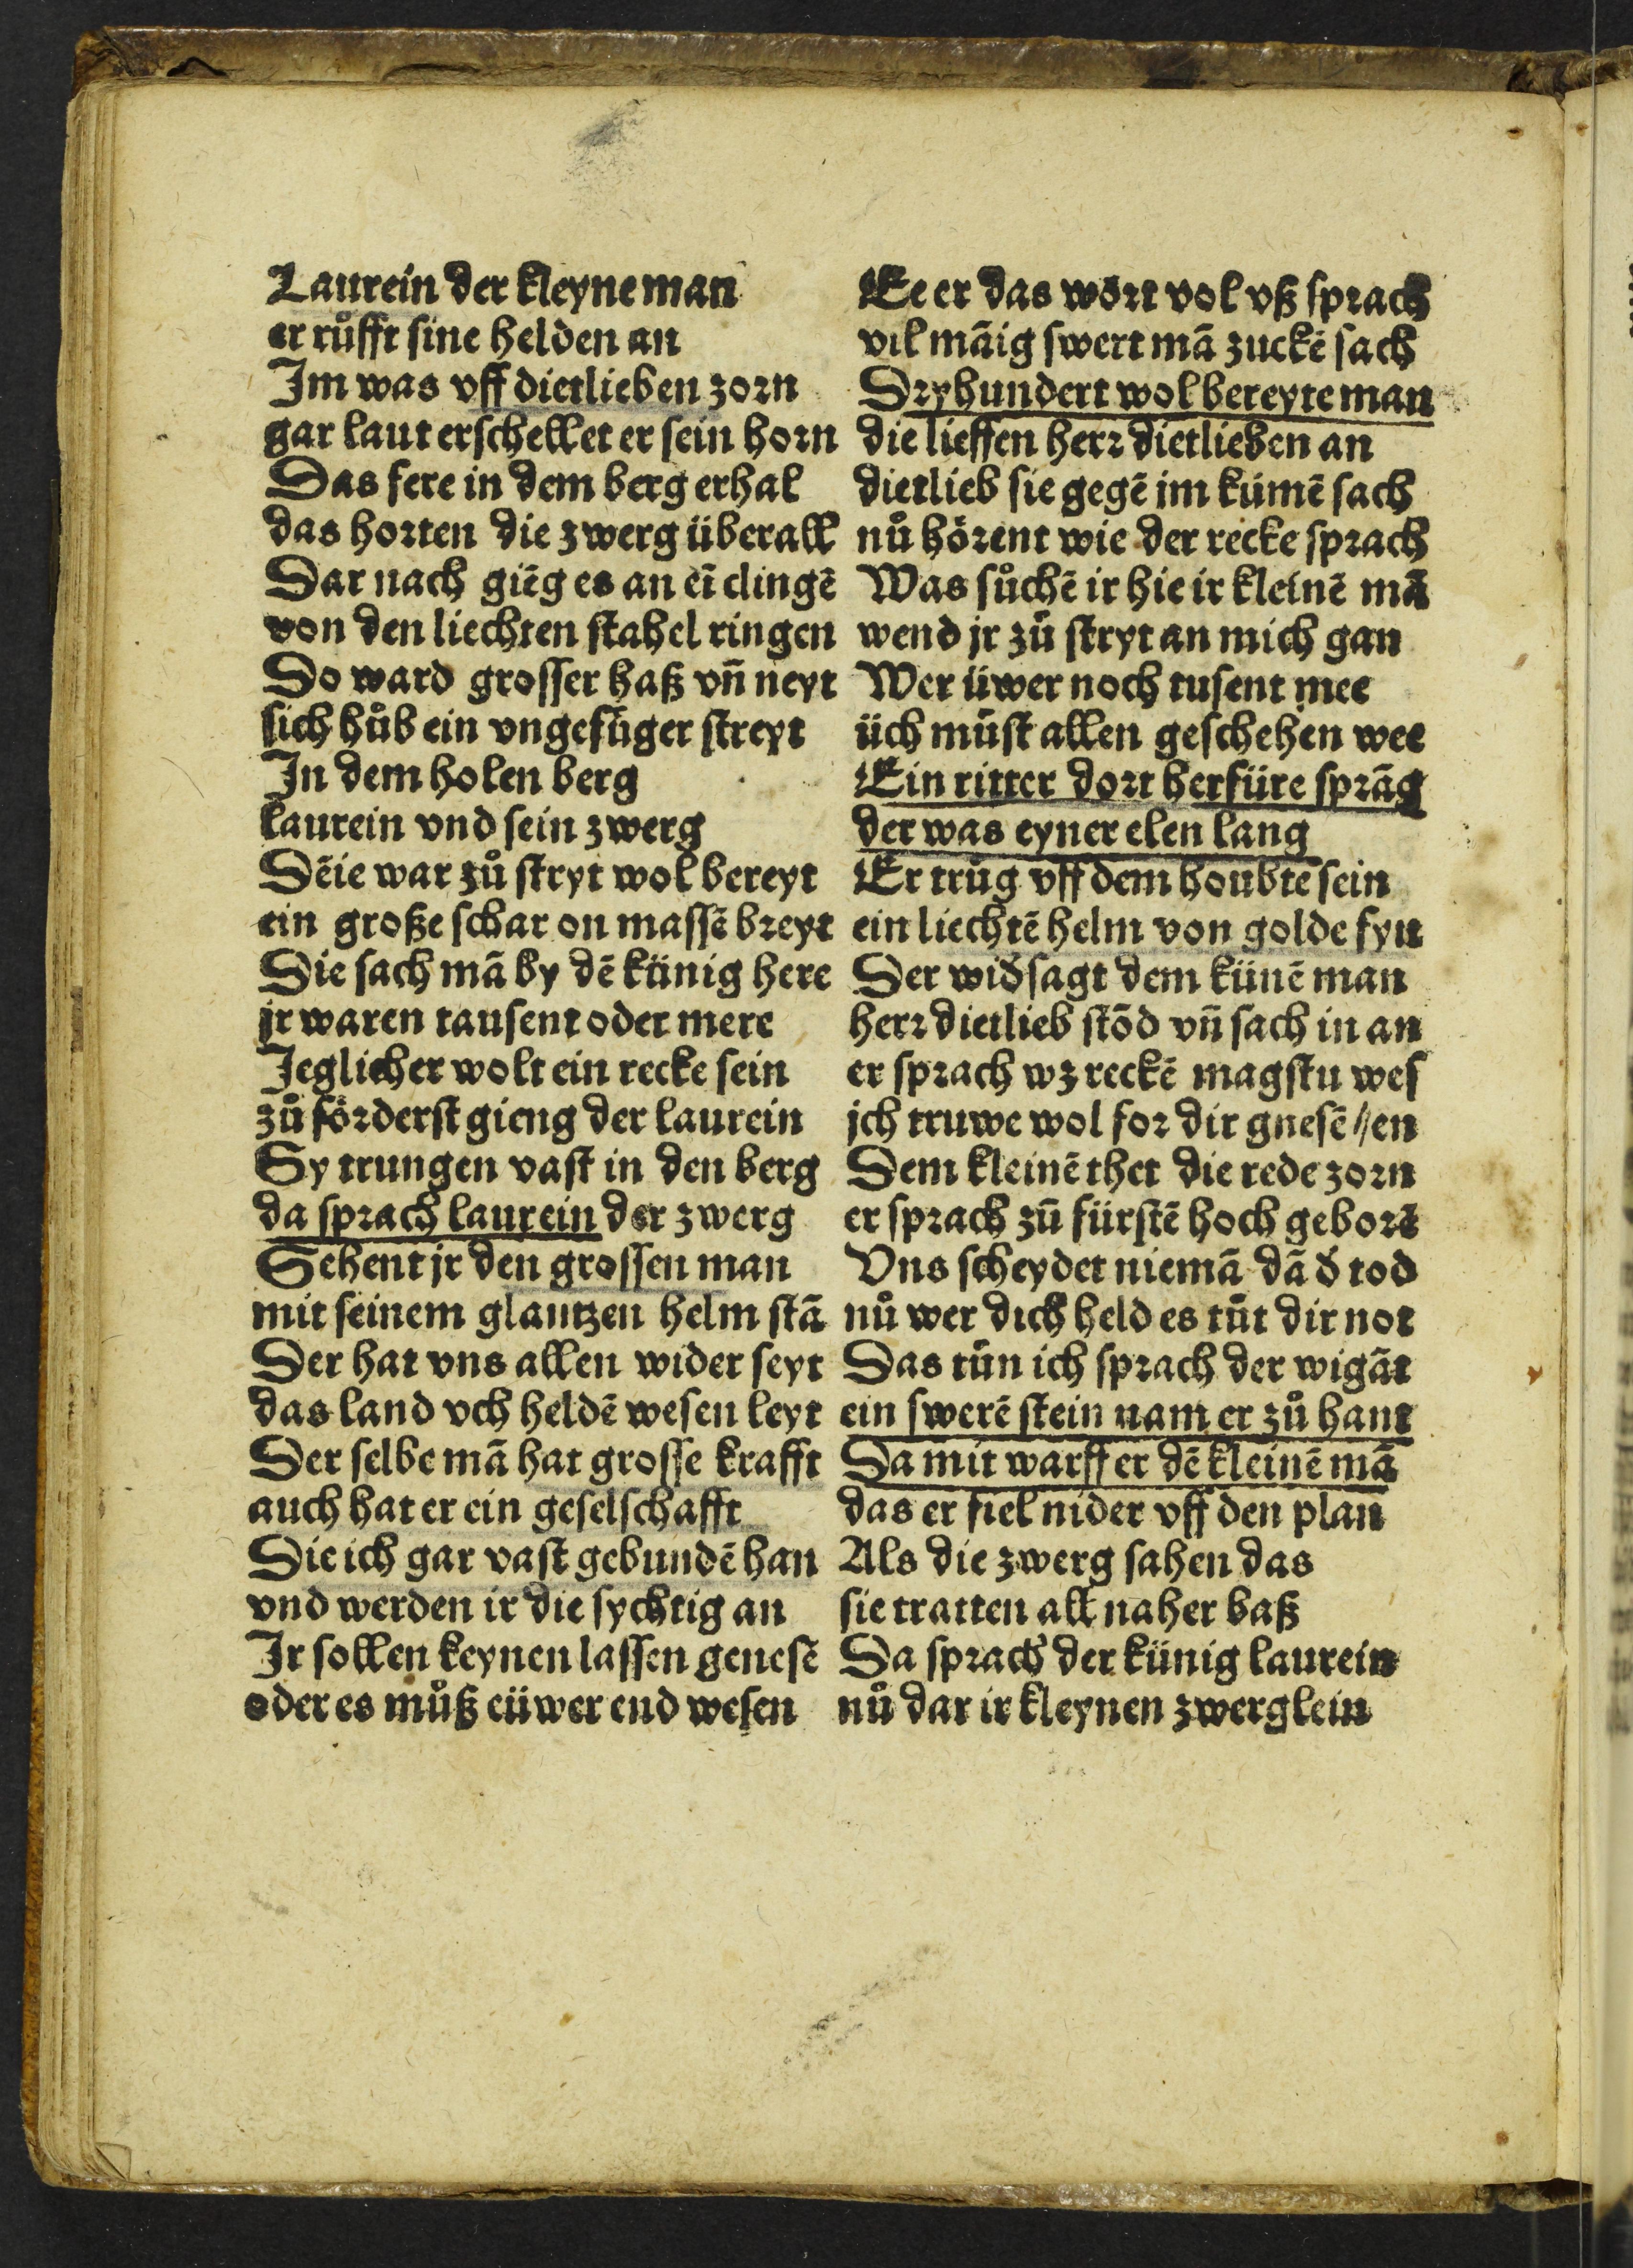 Laurein der kleyne man
er růfft sine helden an
Im was vff dietlieben zorn
gar laut erschellet er sein horn
Das fere in dem berg erhal
das horten die zwerg überall
Dar nach giēg es an eī clingē
von den liechten stahel ringen
Do ward grosser haß vñ neyt
sich hůb ein vngefüger streyt
In dem holen berg
laurein vnd sein zwerg
Dēie war zů stryt wol bereyt
ein große schar on massē breyt
Die sach mā by dē künig here
jr waren tausent oder mere
Jeglicher wolt ein recke sein
zů förderst gieng der laurein
Sy trungen vast in den berg
da sprach laurein der zwerg
Sehent jr den grossen man
mit seinem glantzen helm stā
Der hat vns allen wider seyt
das land vch heldē wesen leyt
Der selbe mā hat grosse krafft
auch hat er ein geselschafft
Die ich gar vast gebundē han
vnd werden ir die sychtig an
Ir sollen keynen lassen genesē
oder es můß eüwer end wesen
Ee er das wort vol vß sprach
vil māig swert mā zuckē sach
Dryhundert wol bereyte man
die lieffen herr dietlieben an
dietlieb sie gegē im kumē sach
nů hörent wie der recke sprach
Was sůchē ir hie ir kleinē mā
wend jr zů stryt an mich gan
Wer üwer noch tusent mee
üch můst allen geschehen wee
Ein ritter dort herfüre sprāg
der was eyner elen lang
Er trůg vff dem houbte sein
ein liechtē helm von golde fyn
Der wid̕sagt dem künē man
herr dietlieb stōd vñ sach in an
er sprach wz reckē magstu wes
jch truwe wol for dir gnesē //en
Dem kleinē thet die rede zorn
er sprach zū fürstē hoch geborē
Vns scheydet niemā dā d̕ tod
nů wer dich held es tůt dir not
Das tůn ich sprach der wigāt
ein swerē stein nam er zů hant
Da mit warff er dē kleinē mā
das er fiel nider vff den plan
Als die zwerg sahen das
sie tratten all naher baß
Da sprach der künig laurein
nů dar ir kleynen zwerglein